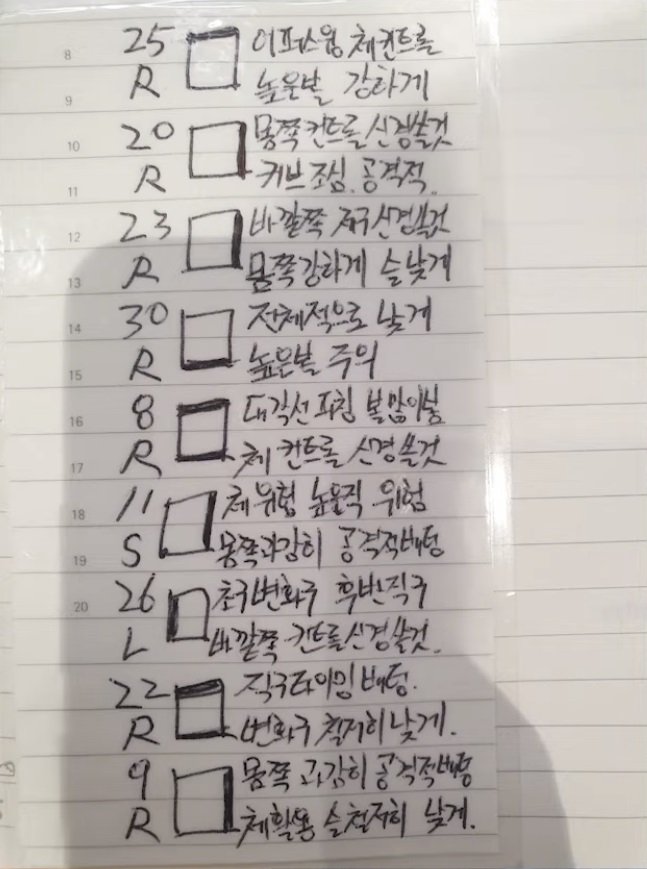 8 25 어퍼스윙 체컨트롤
9 R 높은볼 강하게
10 20 몸쪽컨트롤신경쓸것
11 R 커브조심. 공격적.
12 23 바깥쪽 제구신경쓸것
13 R 몸쪽강하게 슬낮게
14 30 전체적으로 낮게
15 R 높은볼 주의
16 8 대각선피칭 볼많이봄
17 R 체 컨트롤 신경쓸것
18 11 체위험 높은직 위험
19 S 몸쪽과감히 공격적배팅
20 26 초구변화구 후반직구
L 바깥쪽 컨트롤신경쓸것.
22 직구타이밍배팅.
R 변화구 철저히낮게.
9 몸쪽 과감히공격적배팅
R 체활용 슬철저히 낮게.